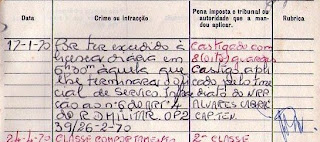 Data
Crime ou infracção
Pena imposta e tribunal ou autoridade que a mandou aplicar.
Rubrica
17-1-70
Por ter excedido à
licença diária em
6h30m àquela que
lhe terminara do
cial de Serviço.
ção ao nº 6 do Artº 4
do R D MILITAR. OP2
39/26-2-70
castigado com
8 (oito) guardas
Castigo apli
cado pelo
Imediato do NRP
ALVARES CABRAL
CAP. TEN.
24-4-70 CLASSE COMPORTAMENTO 2ª CLASSE